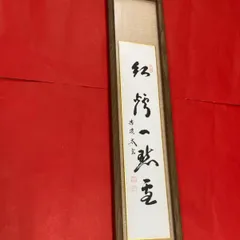 紅爐一點雪